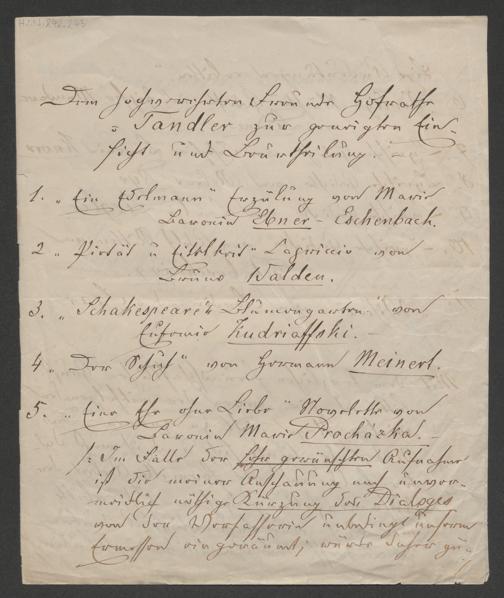 Dem hochverehrten Freunde Hofrathe
Tandler zur geneigten Ein-
sicht und Beurtheilung. –
1. „Ein Edelmann" Erzälung von Marie
Baronin Ebner-Eschenbach.
2 „Pietät u Eitelkeit" Capriccio von
Bruno Walden.
3. „Schakespeare's Blumengarten" von
Eufemie Kudriaffski. –
4 „Der Schuh" von Hermann Meinert.
5. „Eine Ehe ohne Liebe" Novelette von
Baronin Marie Procházka. –
/: Im Falle der sehr gewünschten Aufnahme
ist die meiner Anschauung nach unver-
meidlich nöthige Kürzung des Dialoges
von der Verfasserin unbedingt unserm
Ermessen eingeräumt; würde daher gü-